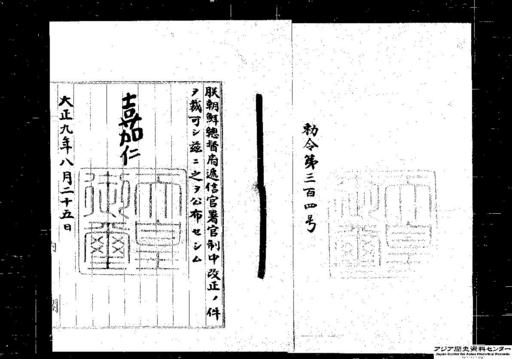 勅令第三百四号
朕朝鮮總督府遞信官署官制中改正ノ件
ヲ裁可シ茲ニ之ヲ公布セシム
嘉仁
天皇御璽
大正九年八月二十五日
内閣
アジア歴史資料センター
Japan Center for Asian Historical Records